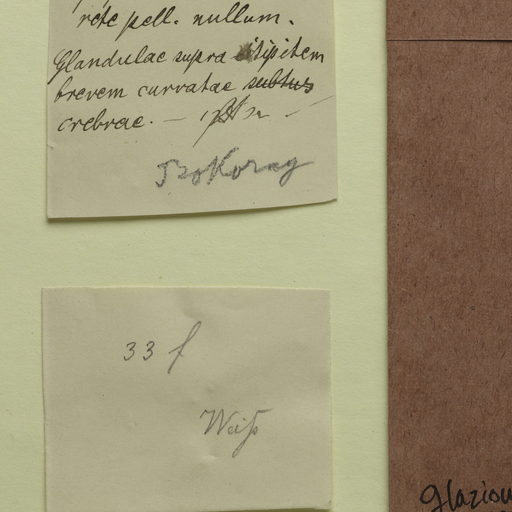 rete pell. nullum.
Glandulae supra stipitem
brevem curvatae subtus
crebrae. —
33 f
Weiß
Glaziou